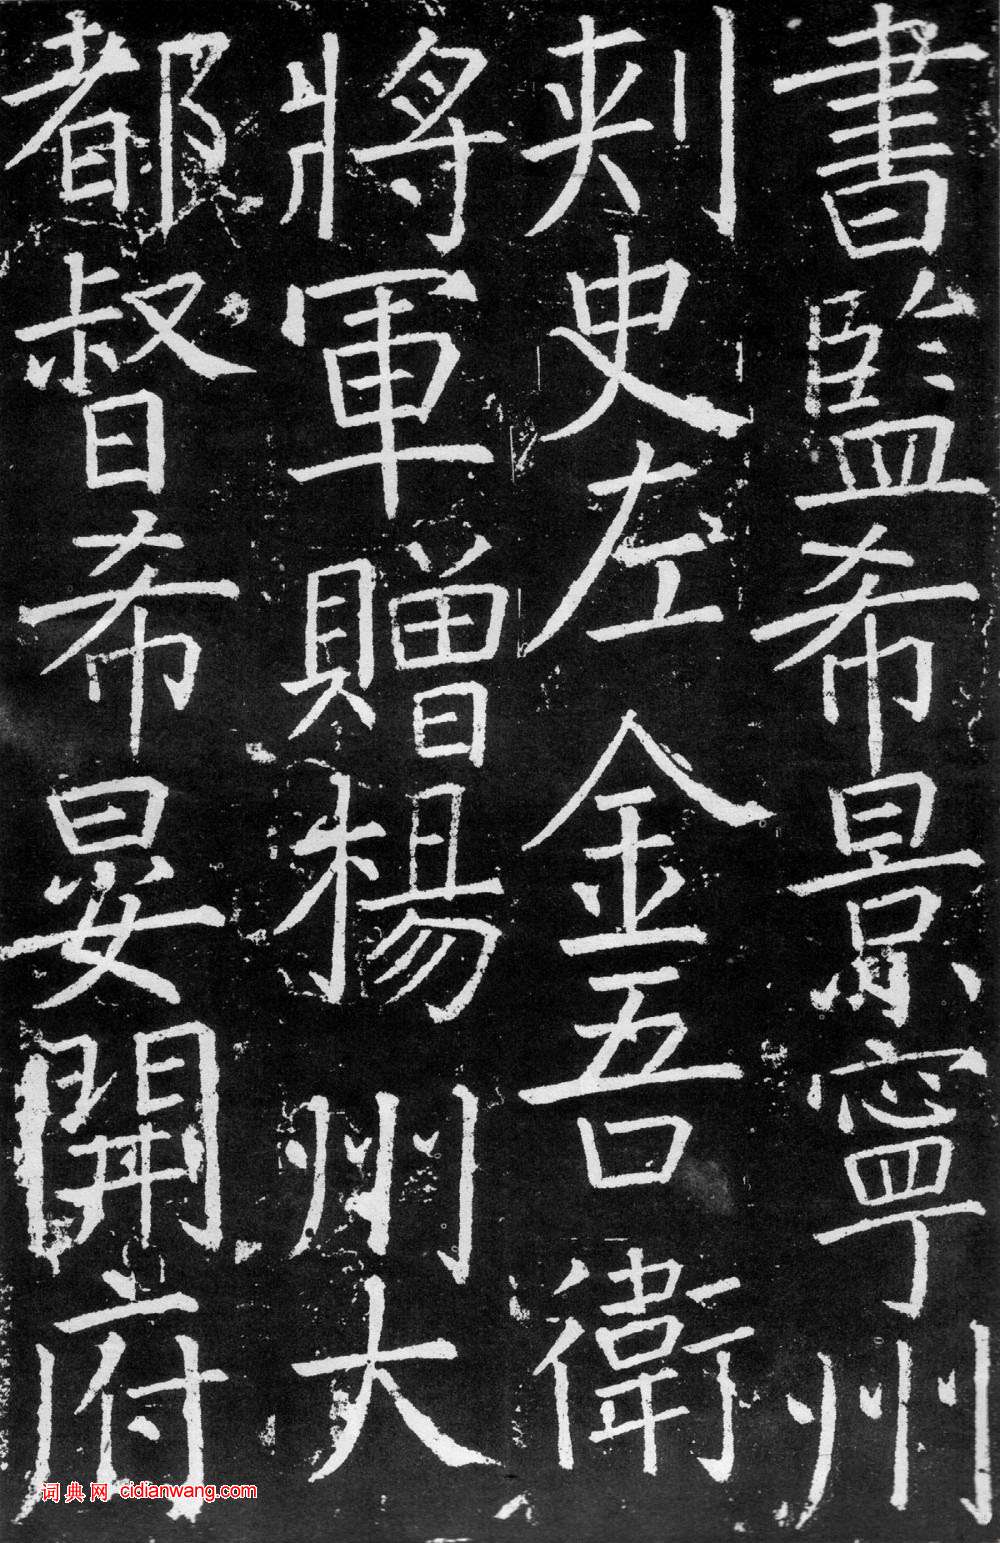 書監希景寧州
刾史左金吾衛
將軍贈楊州大
都督希晏開府
词典网 cidianwang.com